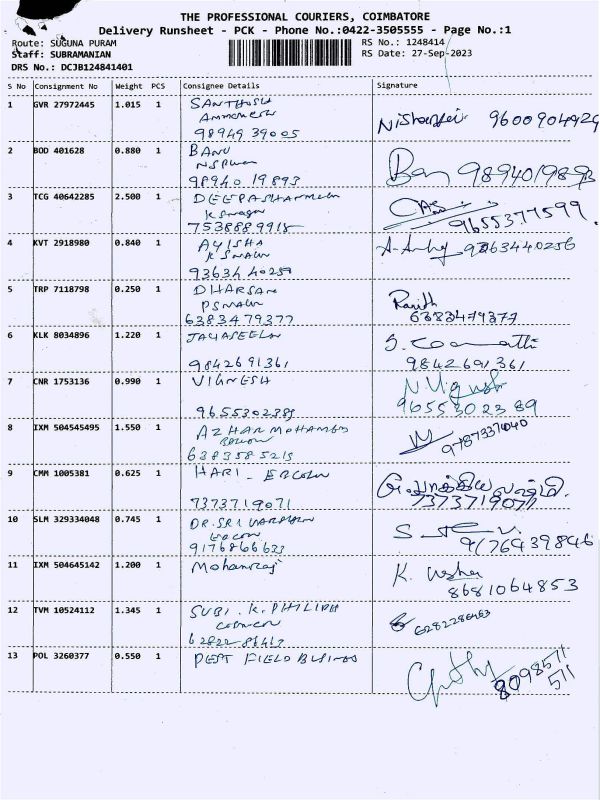 THE PROFESSIONAL COURIERS, COIMBATORE
Delivery Runsheet - PCK - Phone No.:0422-3505555 - Page No.:1
Route: SUGUNA PURAM
RS No.: 1248414
Staff: SUBRAMANIAN
RS Date: 27-Sep-2023
DRS No.: DCJB124841401
S No Consignment No Weight PCS Consignee Details Signature
1 GVR 27972445 1.015 1 SANTHOSH
Nishanthi 9600904929
9894939005
2 BOD 401628 0.880 1 BANU
Ban 9894019893
98940 19893
3 TCG 40642285 2.500 1 DEEPADHARMAN
9655377599
7538889915
4 KVT 2918980 0.840 1 AYISHA
9363440256
5 TRP 7118798 0.250 1 DHARSAN
Ranith
6383479377
6383479377
6 KLK 8034896 1.220 1 JAYASEELN
S. Gomathi
9842691361
9842691361
7 CNR 1753136 0.990 1 VIGNESH
N Vignesh
9655302389
9655302389
8 IXM 504545495 1.550 1 AZHAR MOHAMED
9787337040
6383585215
9 CMM 1005381 0.625 1 HARI - ERCOLN
7373719071
7373719071
10 SLM 329334048 0.745 1 DR. SRI VARDHAN
9176866633
9176439846
11 IXM 504645142 1.200 1 Mohanraj
K. Usha
8681064853
12 TVM 10524112 1.345 1 SUBI. K. PHILIPH
6282286463
13 POL 3260377 0.550 1 PEST FIELD BUSINES
8098571
511